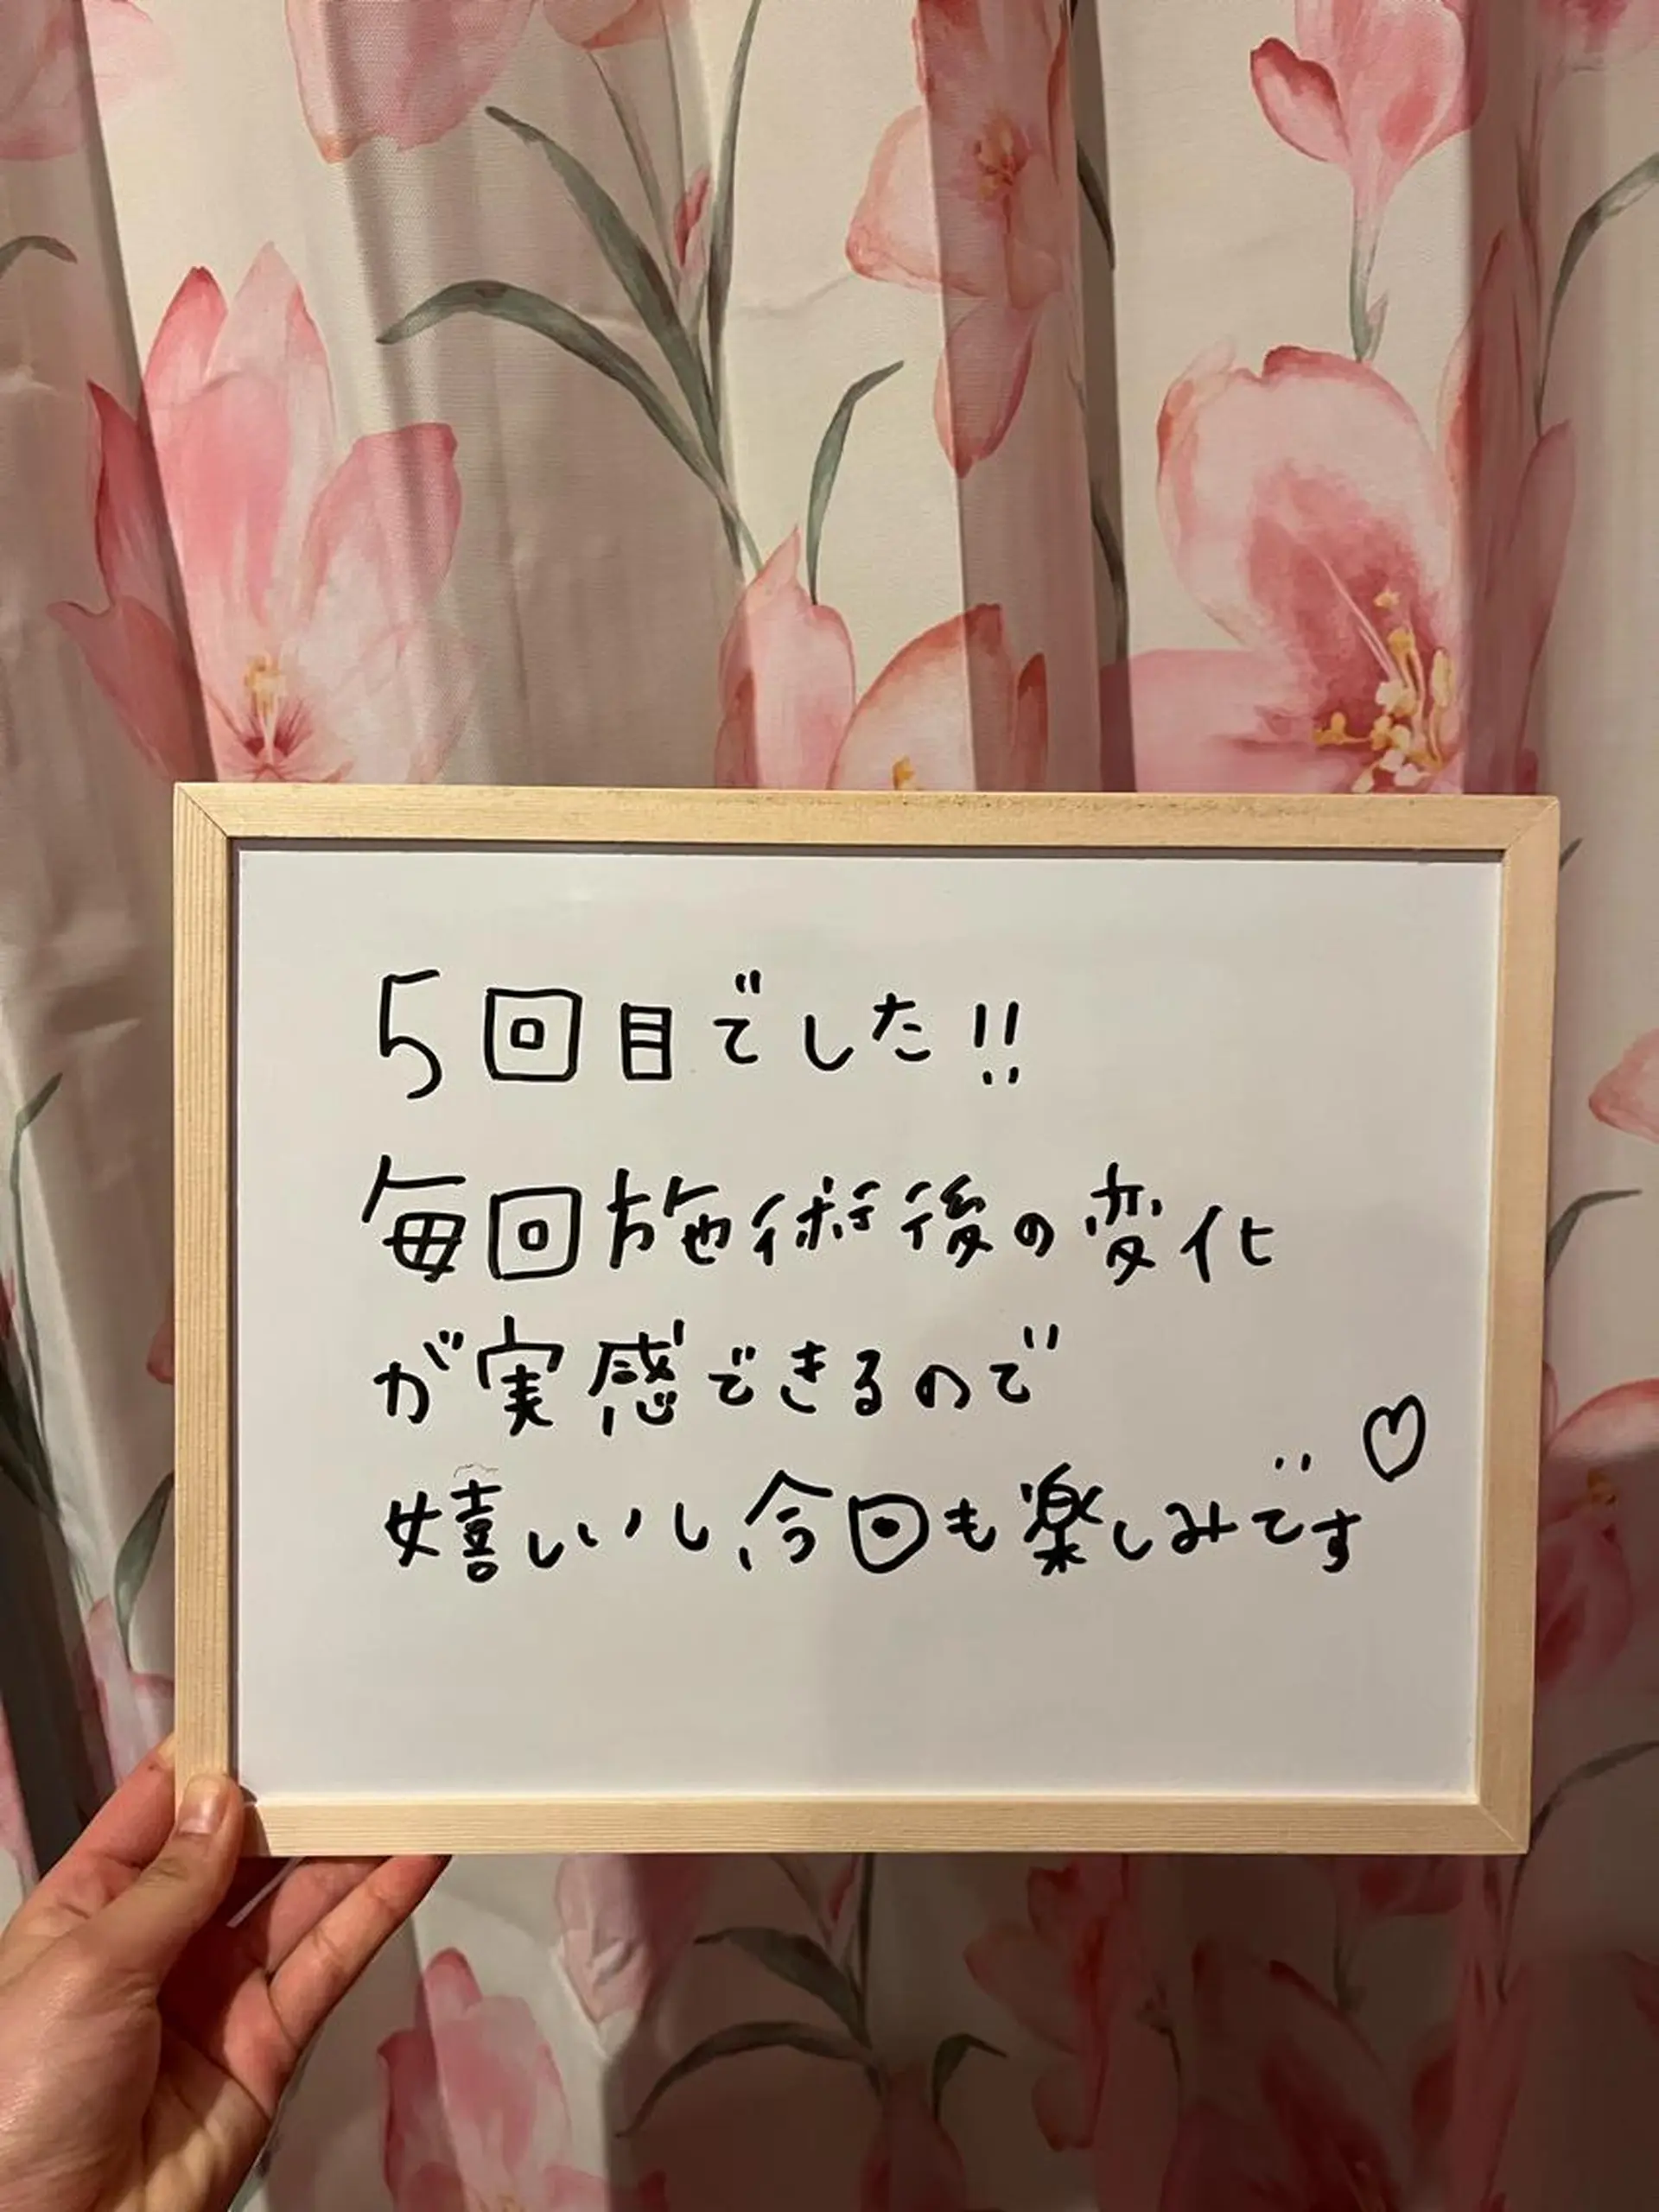 5回目でした!!
毎回施術後の変化
が実感できるので
嬉しいし今回も楽しみです♡